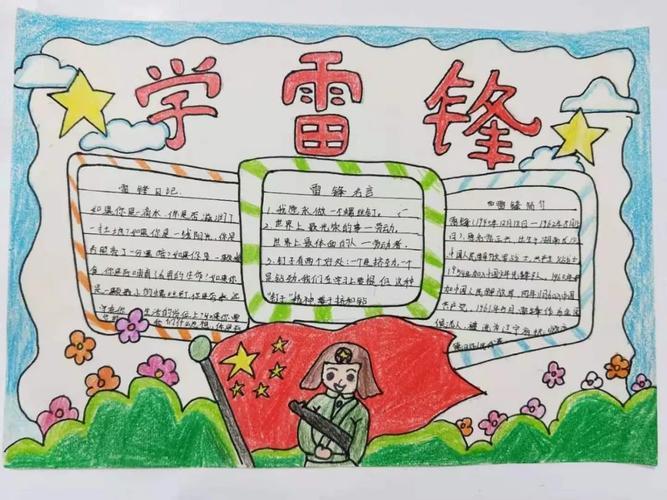 学雷锋
雷锋日记:
如果你是一滴水,你是否滋润了
一片土地?如果你是一线阳光,你是
否照亮了一分黑暗?如果你是一颗粮
食,你是否哺育了有用的生命?如果你
是一颗最小的螺丝钉,你是否永远
你生活的岗位上?如果你要
我们什么思想,你是否
雷锋名言
1.我愿永做一个螺丝钉。
2.世界上最光荣的事—劳动。
世界上最体面的人—劳动者。
3.钉子有两个好处:一个是挤劲,一个
是钻劲,我们在学习上要提倡这种
"钉子"精神善于挤和钻
雷锋简介
雷锋(1940年12月18日—1962年8月15
日),原名雷正兴,出生于湖南长沙
中国人民解放军战士,共产主义战士
1954年加入中国少年先锋队,1960年参
加中国人民解放军,同年11月加入中国
共产党。1961年5月,雷锋作为
候选人,被选为辽宁省抚顺